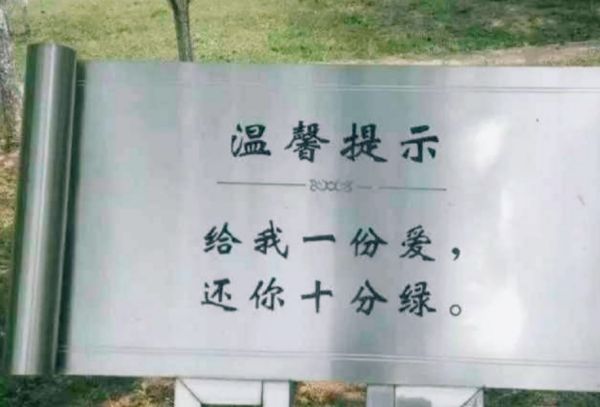 温馨提示
给我一份爱，
还你十分绿。